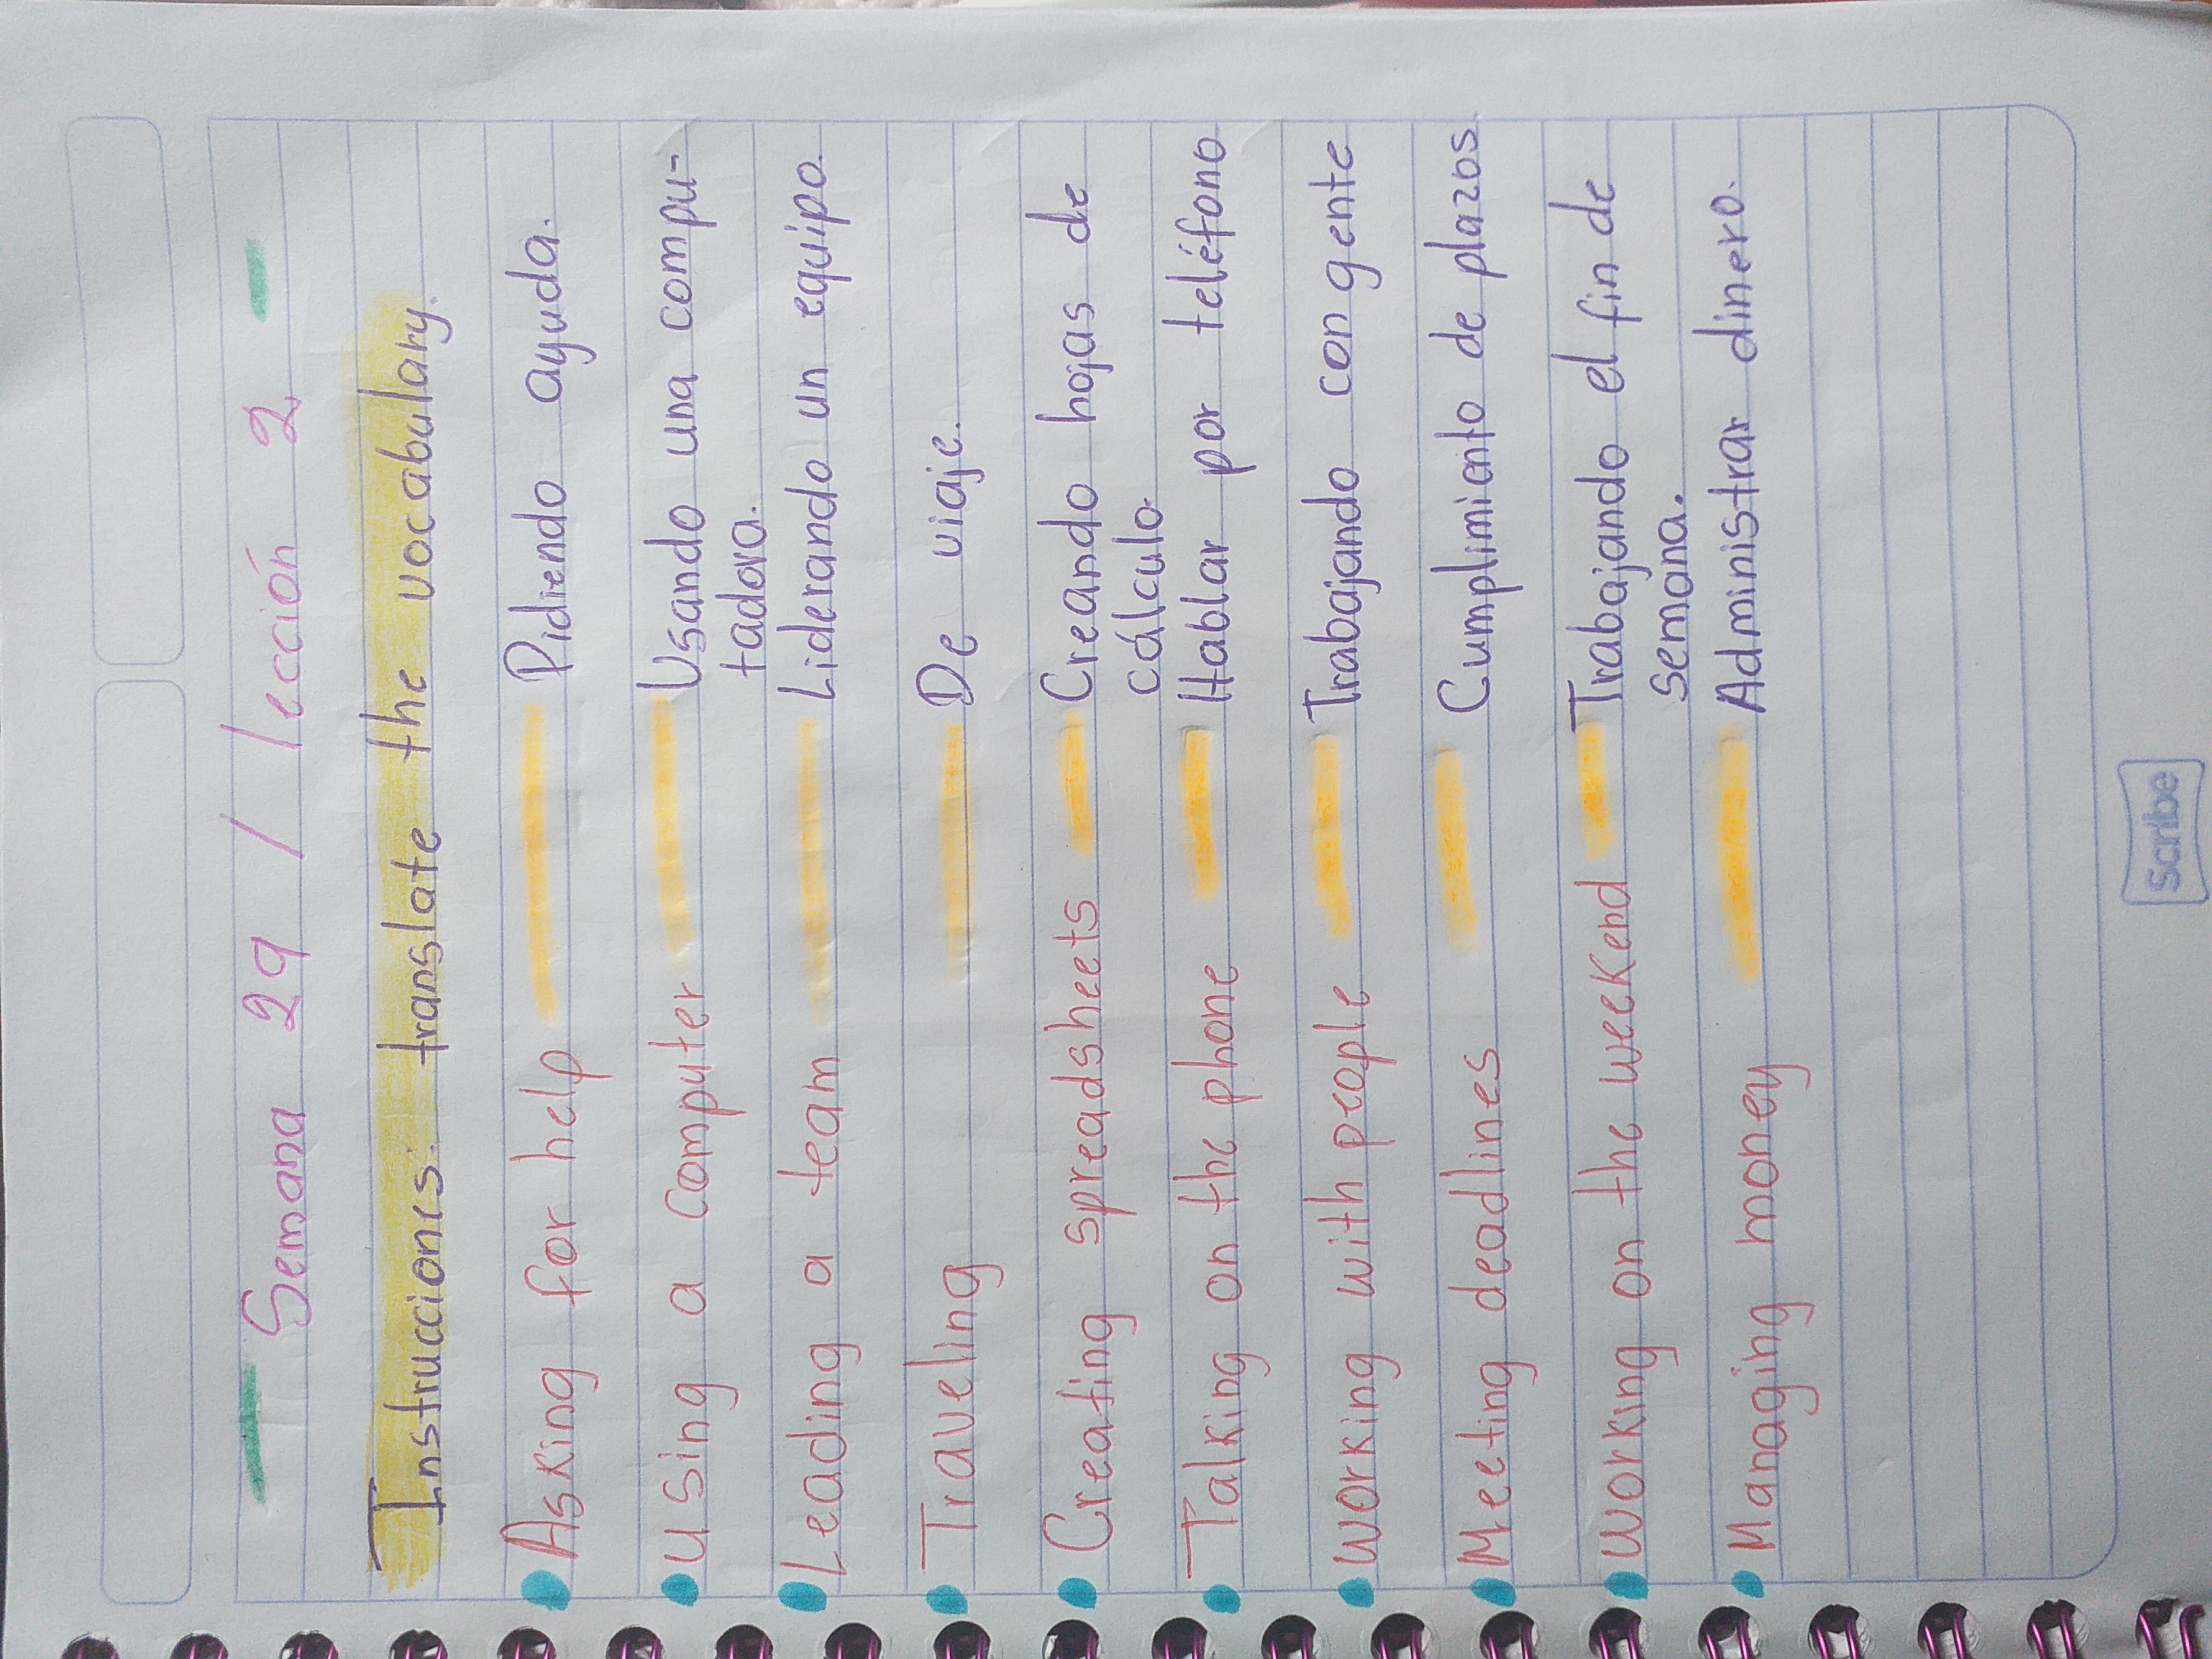 Semana 29 / lección 2
Instrucciones: translate the vocabulary.
Asking for help Pidiendo ayuda.
using a computer Usando una compu-
tadora.
Leading a team Liderando un equipo.
Traveling De viaje.
Creating spreadsheets Creando hojas de
cálculo.
Talking on the phone Hablar por teléfono
working with people Trabajando con gente
Meeting deadlines Cumplimiento de plazos
working on the weekend Trabajando el fin de
semana.
Managing money Administrar dinero.
Scribe